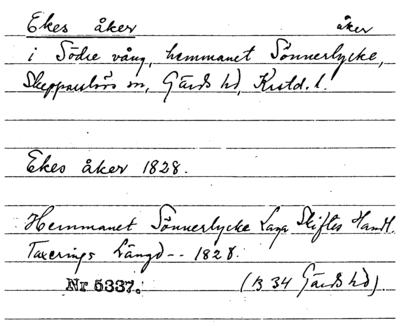 Ekes åker åker
i Södre vång, hemmanet Sönnerlycke,
Skepparslövs sn, Gärds hd, Krstd. l.
Ekes åker 1828.
Hemmanet Sönnerlycke Laga Skiftes Handl.
Taxerings Längd -- 1828.
Nr 5337. (B 34 Gärds hd).